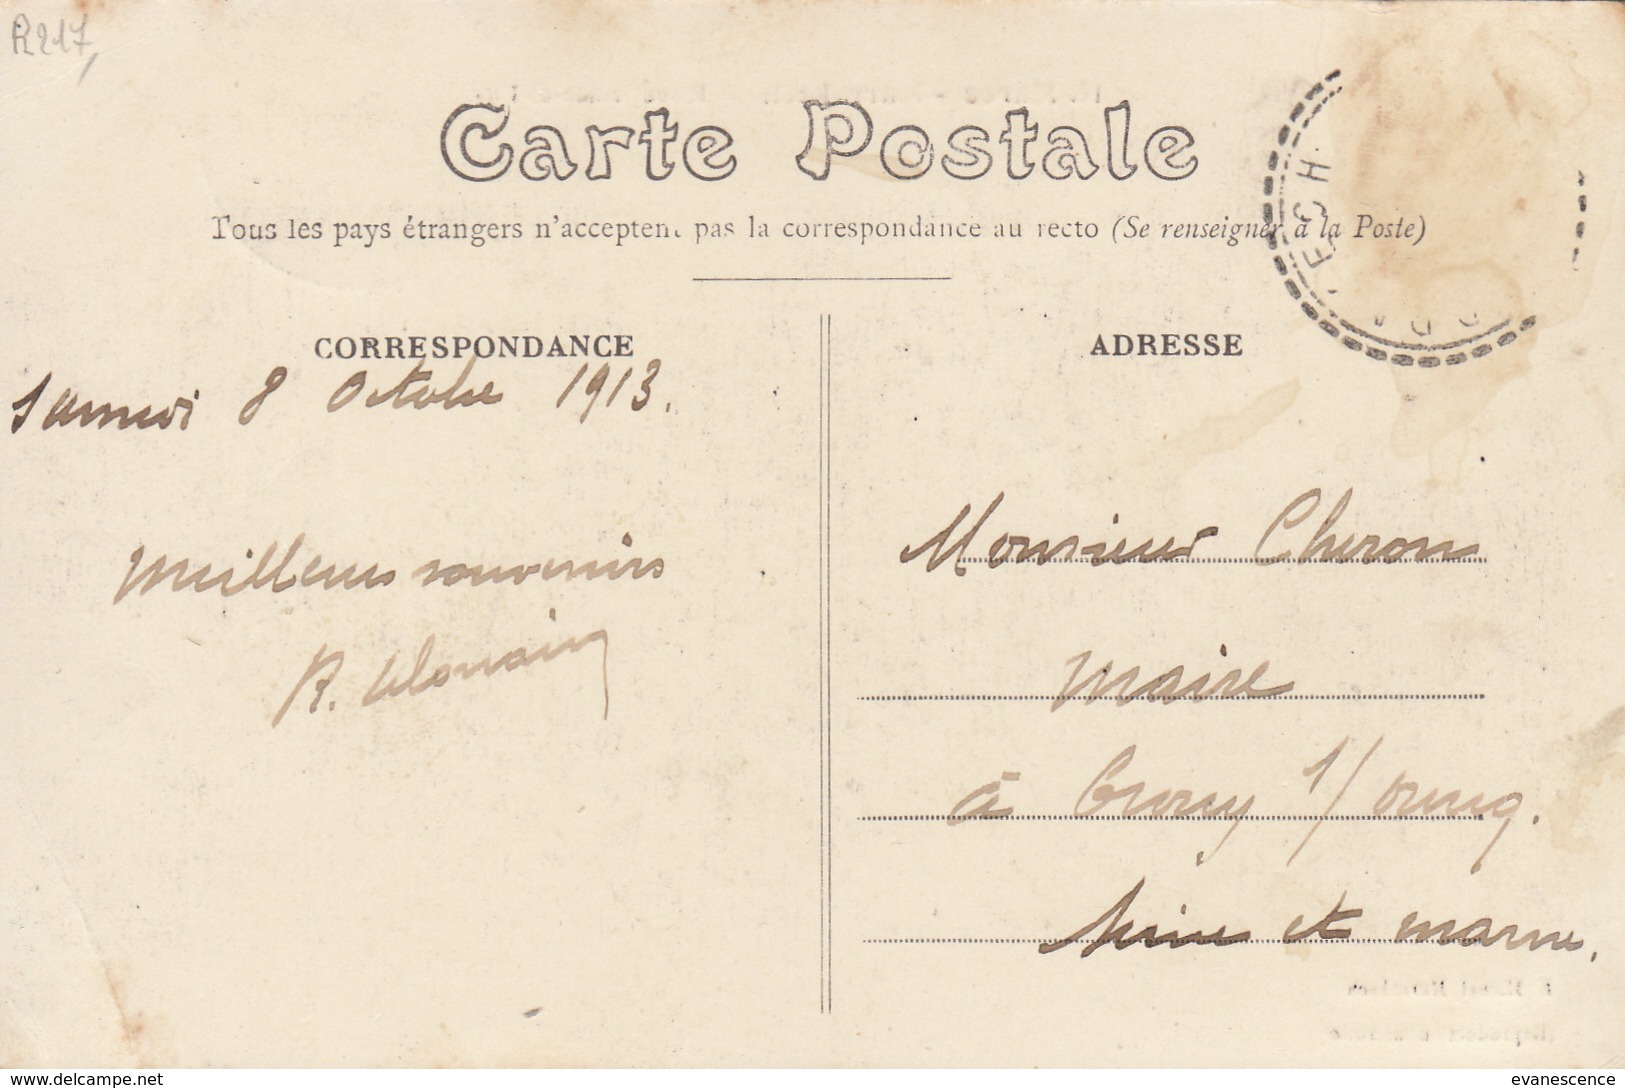 R217
Carte Postale
Tous les pays étrangers n'acceptent pas la correspondance au recto (Se renseigner à la Poste)
CORRESPONDANCE
ADRESSE
Samedi 8 Octobre 1913.
Meilleurs souvenirs
R.
Monsieur Cheron
Maire
à Crouy s/ ourcq.
Seine et marne.
www.delcampe.net
evanescence